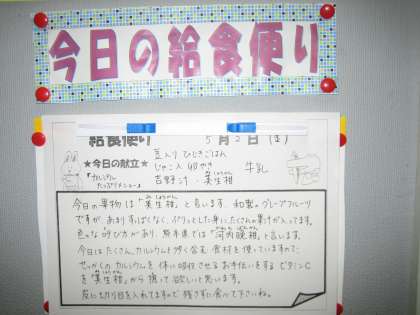 今日の給食便り
給食便り 5月2日(金)
★今日の献立★
「カルシウムたっぷりメニュー」
豆入りひじきごはん
じゃこ入り卵やき 牛乳
吉野汁・美生柑
今日の果物は「美生柑」と言います。和製グレープフルーツ
ですが、あまりすっぱくなく、プリッとした身にたくさんの果汁が入ってます。
色々な呼び方があり、熊本県では「河内晩柑」と言います。
今日はたくさんカルシウムを多く含む食材を使っていますので、
せっかくのカルシウムを体に吸収させるお手伝いをするビタミンC
を「美生柑」から摂って欲しいと思います。
皮に切り目を入れてますので残さずに食べて下さいね。